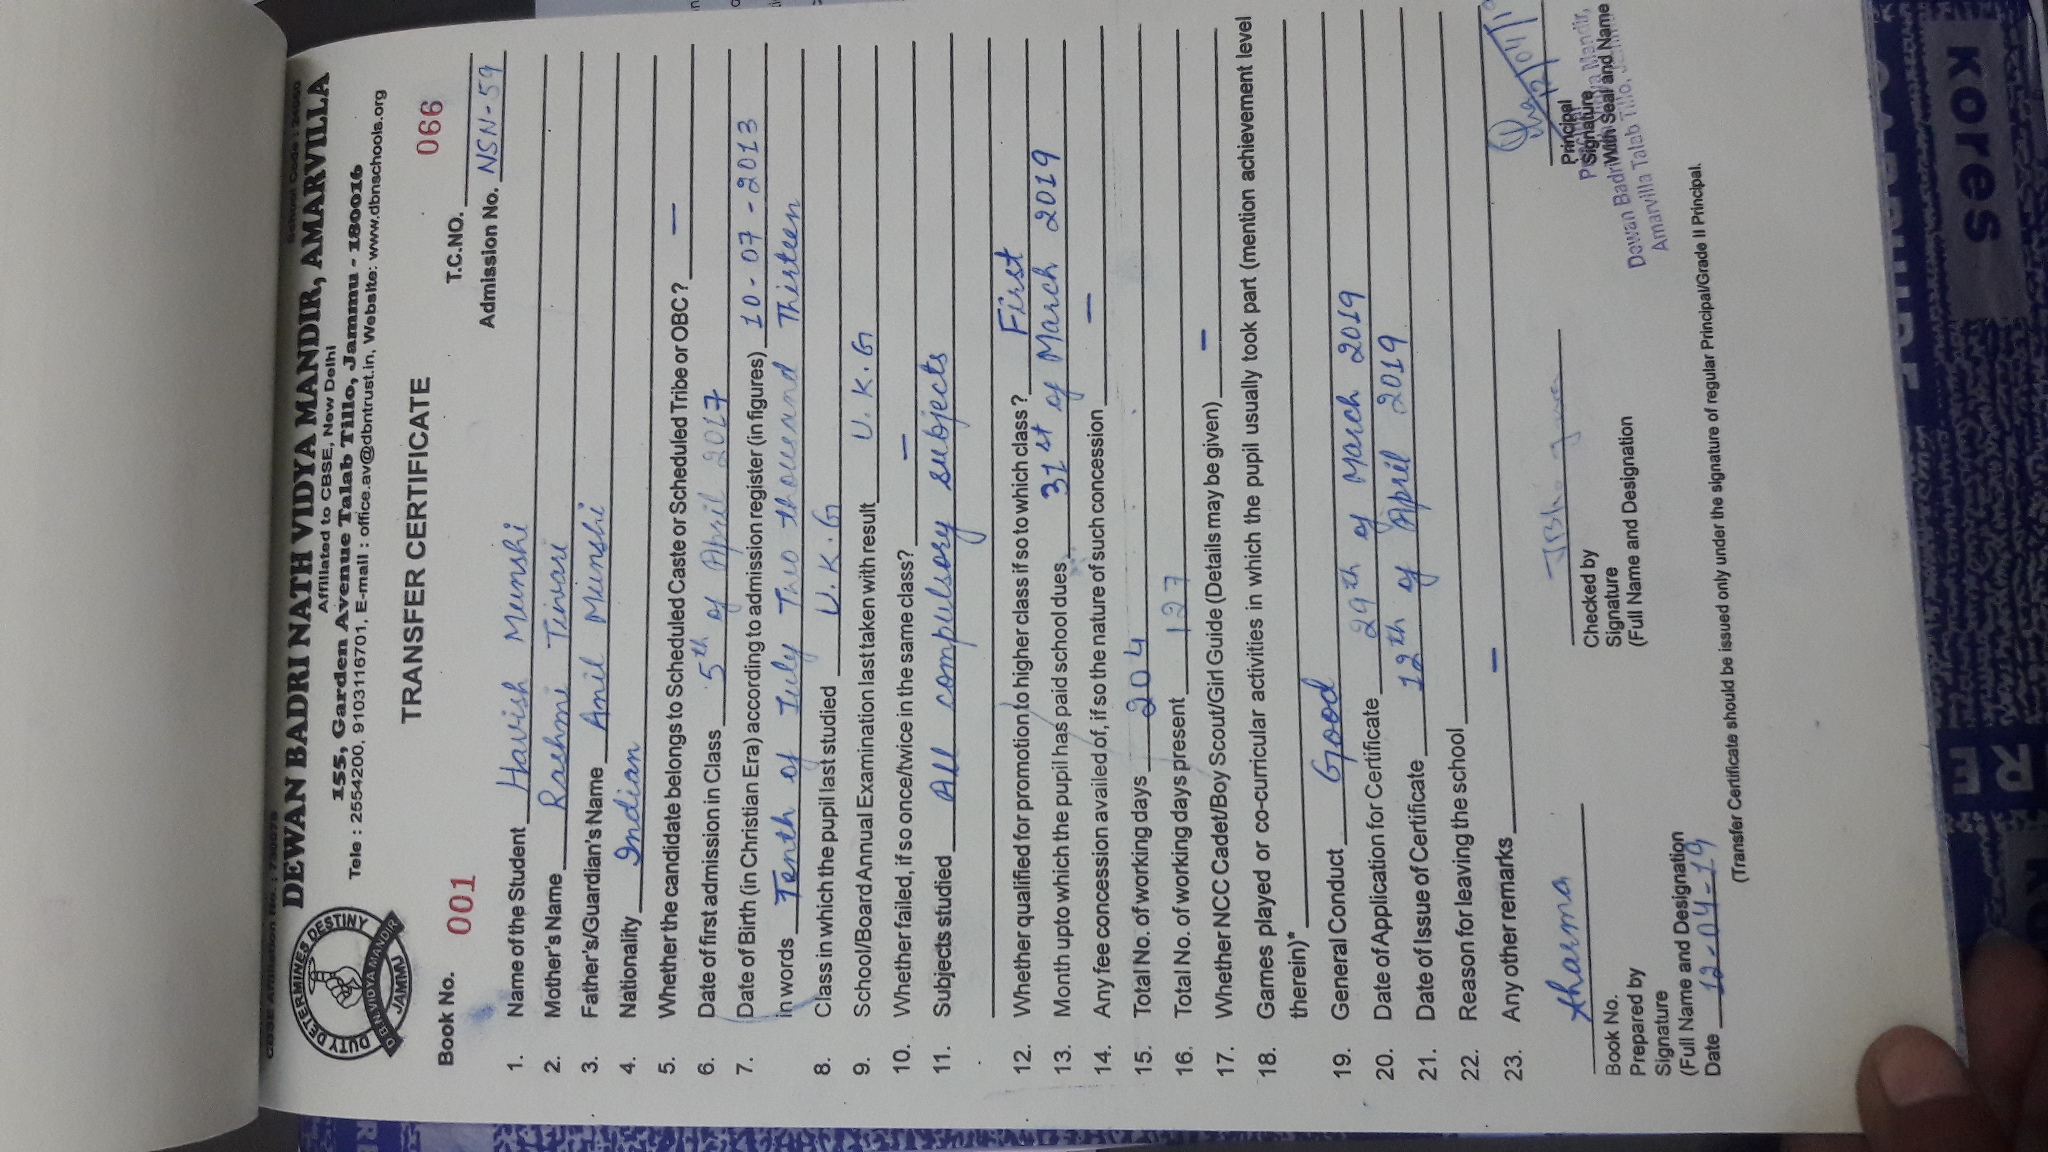 DEWAN BADRI NATH VIDYA MANDIR, AMARVILLA
Affiliated to CBSE, New Delhi
155, Garden Avenue Talab Tillo, Jammu - 180016
Tele : 2554200, 9103116701, E-mail : office.av@dbntrust.in, Website: www.dbnschools.org
DUTY DETERMINES DESTINY
D.B.N. VIDYA MANDIR
JAMMU
TRANSFER CERTIFICATE
066
Book No. 001 T.C.NO.
Admission No. NSN-59
1. Name of the Student Havish Munshi
2. Mother's Name Rashmi Tiwari
3. Father's/Guardian's Name Anil Munshi
4. Nationality Indian
5. Whether the candidate belongs to Scheduled Caste or Scheduled Tribe or OBC? —
6. Date of first admission in Class 5th of April 2017
7. Date of Birth (in Christian Era) according to admission register (in figures) 10-07-2013
in words Tenth of July Two thousand Thirteen
8. Class in which the pupil last studied U.K.G
9. School/Board Annual Examination last taken with result U.K.G
10. Whether failed, if so once/twice in the same class? —
11. Subjects studied All compulsory subjects
12. Whether qualified for promotion to higher class if so to which class? First
13. Month upto which the pupil has paid school dues 31st of March 2019
14. Any fee concession availed of, if so the nature of such concession —
15. Total No. of working days 204
16. Total No. of working days present 127
17. Whether NCC Cadet/Boy Scout/Girl Guide (Details may be given) —
18. Games played or co-curricular activities in which the pupil usually took part (mention achievement level
therein)*
19. General Conduct Good
20. Date of Application for Certificate 29th of March 2019
21. Date of Issue of Certificate 12th of April 2019
22. Reason for leaving the school
23. Any other remarks —
Sharma
Book No.
Prepared by
Signature
(Full Name and Designation
Date 12-04-19
Checked by
Signature
(Full Name and Designation)
12/04/19
Principal
Signature
With Seal and Name
Dewan Badri
Mandir,
Amarvilla Talab Tillo,
(Transfer Certificate should be issued only under the signature of regular Principal/Grade II Principal.
Kores